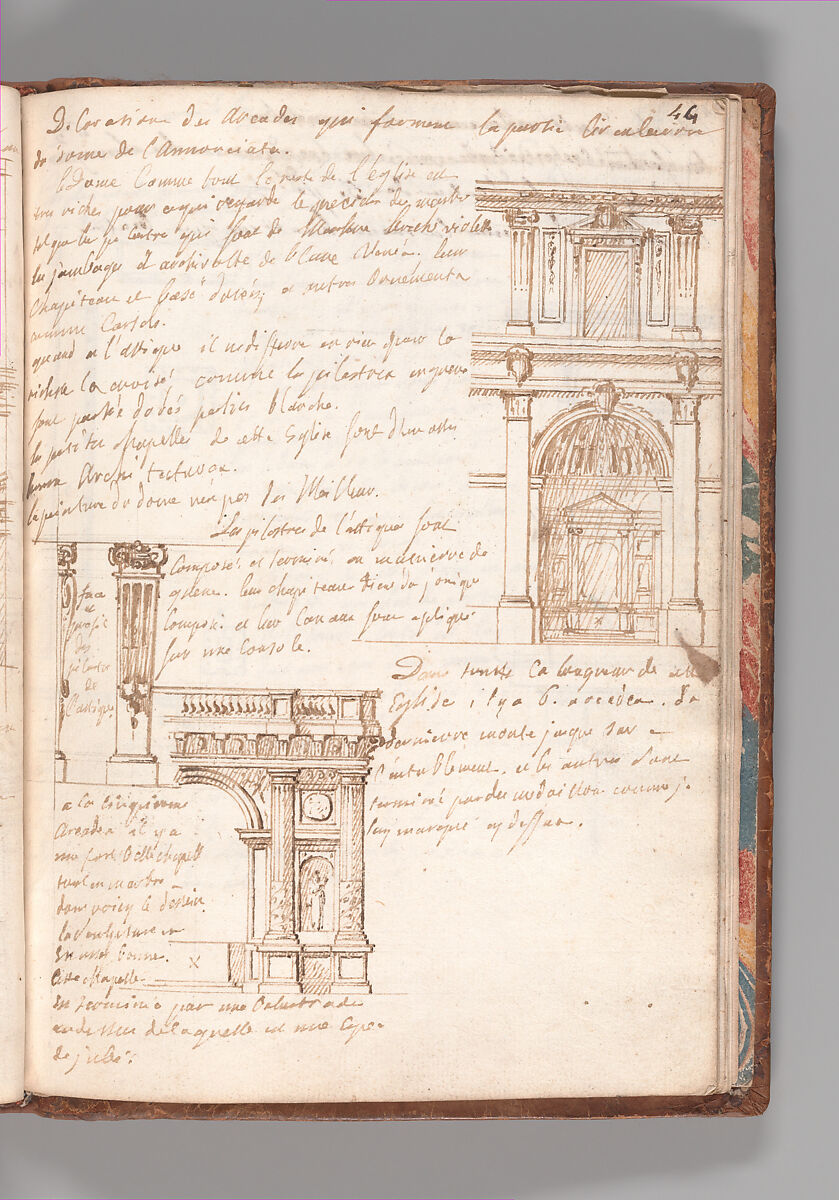 44
Decorations des Arcades qui forment la partie Circulaire
du dome de l'Annonciata.
le Dome Comme tout le reste de l'Eglise est
tres riches pour ce qui regarde le precieux des marbre
tel que le pilastre qui sont de Marbre violet
les jambages et archivolte de blanc Veiné. leur
Chapiteau et base dorés et autres Ornements
comme Cartels.
quand a l'attique il ne differe en rien pour la
richesse la croisé comme les pilastres
sont parties dorés parties blanche.
les petites chapelles de cette Eglise sont d'une asses
bonne Architecture.
la peinture du dome n'est pas des Meilleur.
Les pilastres de l'attique sont
Composés et terminé en maniere de
guene. leur chapiteau tien du jonique
Composé. et leur Canaux sont
sur une Console.
face
et
profil
des
pilastre
de
l'attique
Dans toutte la longueur de cette
Eglise il y a 6. arcades. La
derniere monte jusque sur
l'entablement. et les autres sont
terminé par des medaillon comme je
l'ay marqué cy dessus.
a la Cinquieme
Arcades il y a
une fort belle chapelle
tout en marbre
dont voicy le dessein.
la sculpture en
est asses bonne.
Cette chapelle
est terminée par une balustrade
au dessus de laquelle est une espece
de jubé.